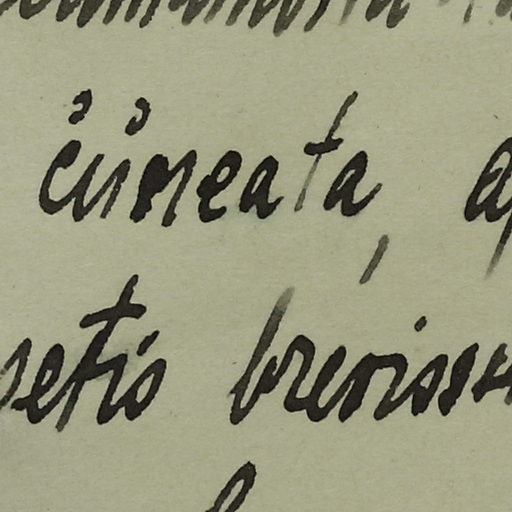 cuneata, a
setis breviss